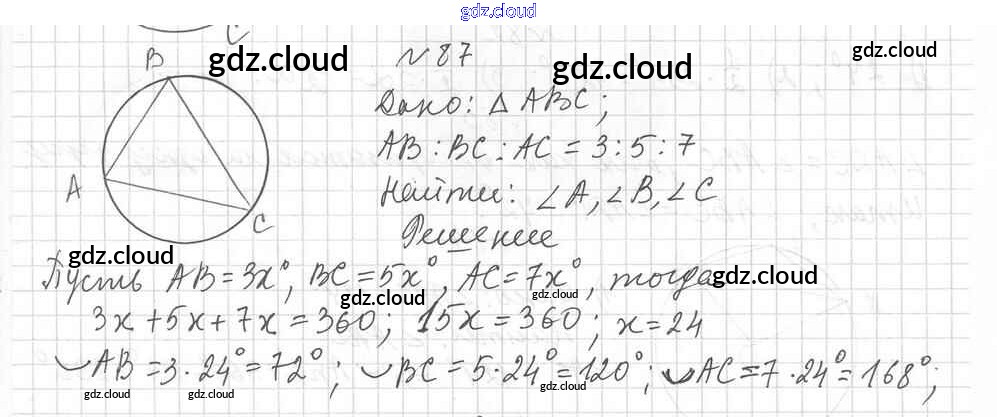 gdz.cloud
N 87
gdz.cloud
gdz.cloud
gdz.cloud
B
A
C
Дано: △ ABC;
AB : BC : AC = 3 : 5 : 7
Найти: ∠A, ∠B, ∠C
Решение
gdz.cloud
gdz.cloud
Пусть AB = 3x°, BC = 5x°, AC = 7x°, тогда
gdz.cloud
gdz.cloud
3x + 5x + 7x = 360; 15x = 360; x = 24
◡AB = 3 · 24° = 72°; ◡BC = 5 · 24° = 120°; ◡AC = 7 · 24° = 168°;
gdz.cloud
gdz.cloud
gdz.cloud
gdz.cloud